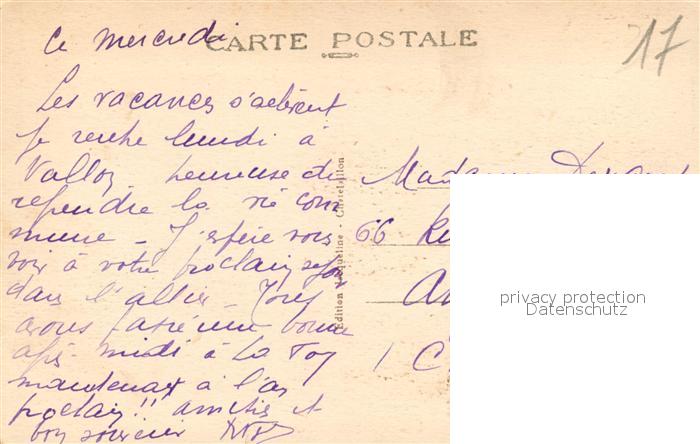 17
Ce mercredi
CARTE POSTALE
Les vacances s'achèvent
je rentre lundi à
Vallon heureuse de
reprendre la vie com
mune - J'espère vous
voir à votre prochain séjour
dans l'allier
avons passé une bonne
après-midi à La
maintenant à l'an
prochain!! amitiés et
bon souvenir
Edition Jacqueline - Chatelaillon
Madame
66
1
privacy protection
Datenschutz